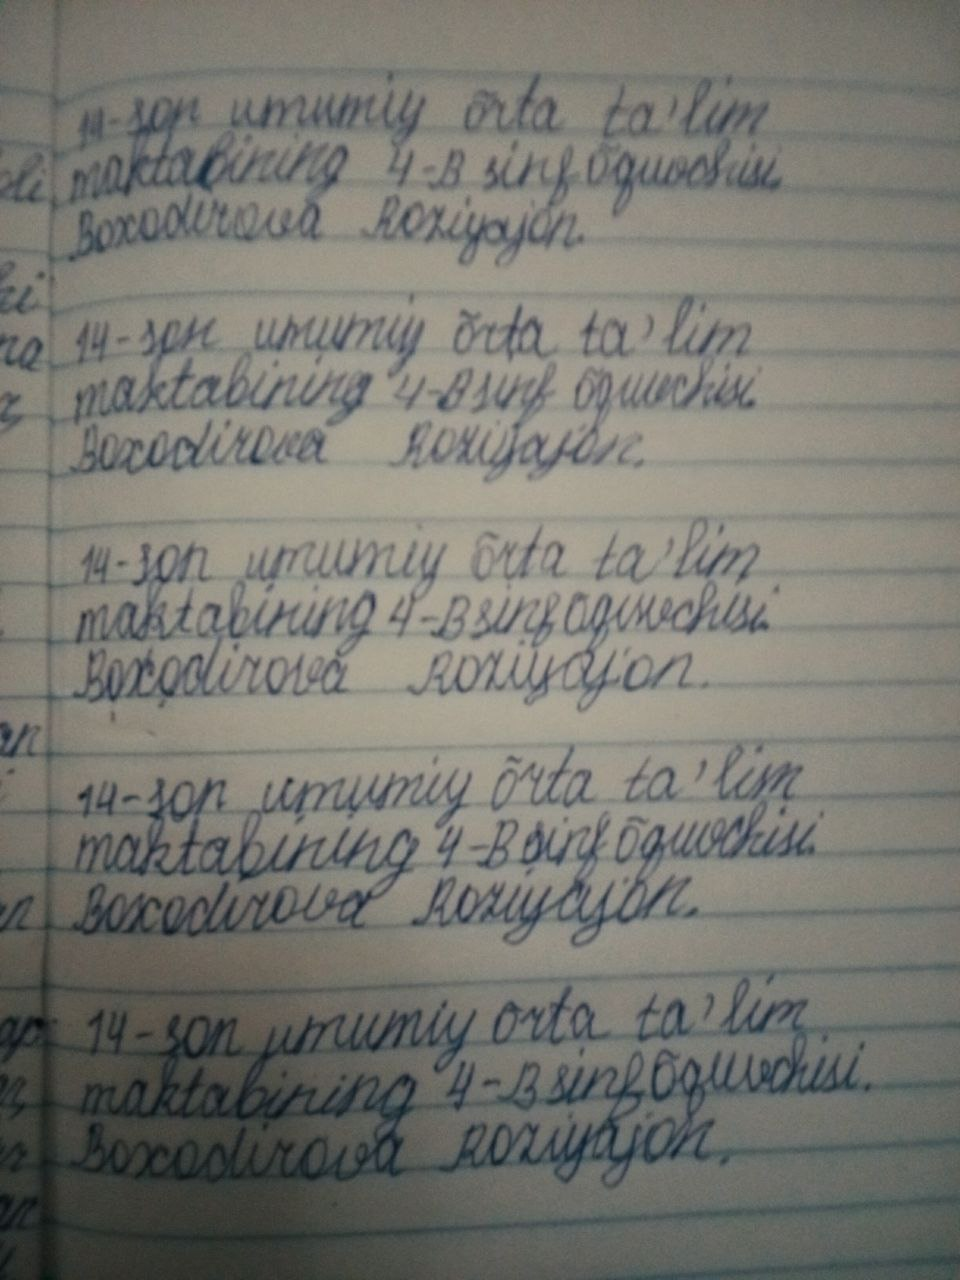 14-son umumiy õrta ta'lim
maktabining 4-B sinf õquvchisi
Boxodirova Roziyajon.
14-son umumiy õrta ta'lim
maktabining 4-B sinf õquvchisi
Boxodirova Roziyajon.
14-son umumiy õrta ta'lim
maktabining 4-B sinf õquvchisi.
Boxodirova Roziyajon.
14-son umumiy õrta ta'lim
maktabining 4-B sinf õquvchisi.
Boxodirova Roziyajon.
14-son umumiy õrta ta'lim
maktabining 4-B sinf õquvchisi.
Boxodirova Roziyajon.